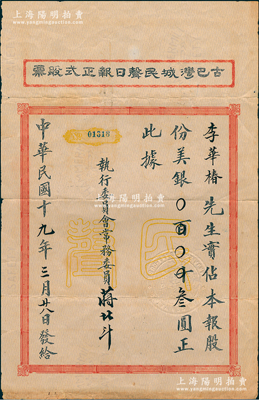 上海陽明拍賣
古巴灣城民聲日報正式股票
01516
李華椿先生實佔本報股
份美銀〇百〇十叁圓正
此據
執行委員會常務委員蔣北斗
中華民國十九年三月廿八日發給
民
聲
上海陽明拍賣